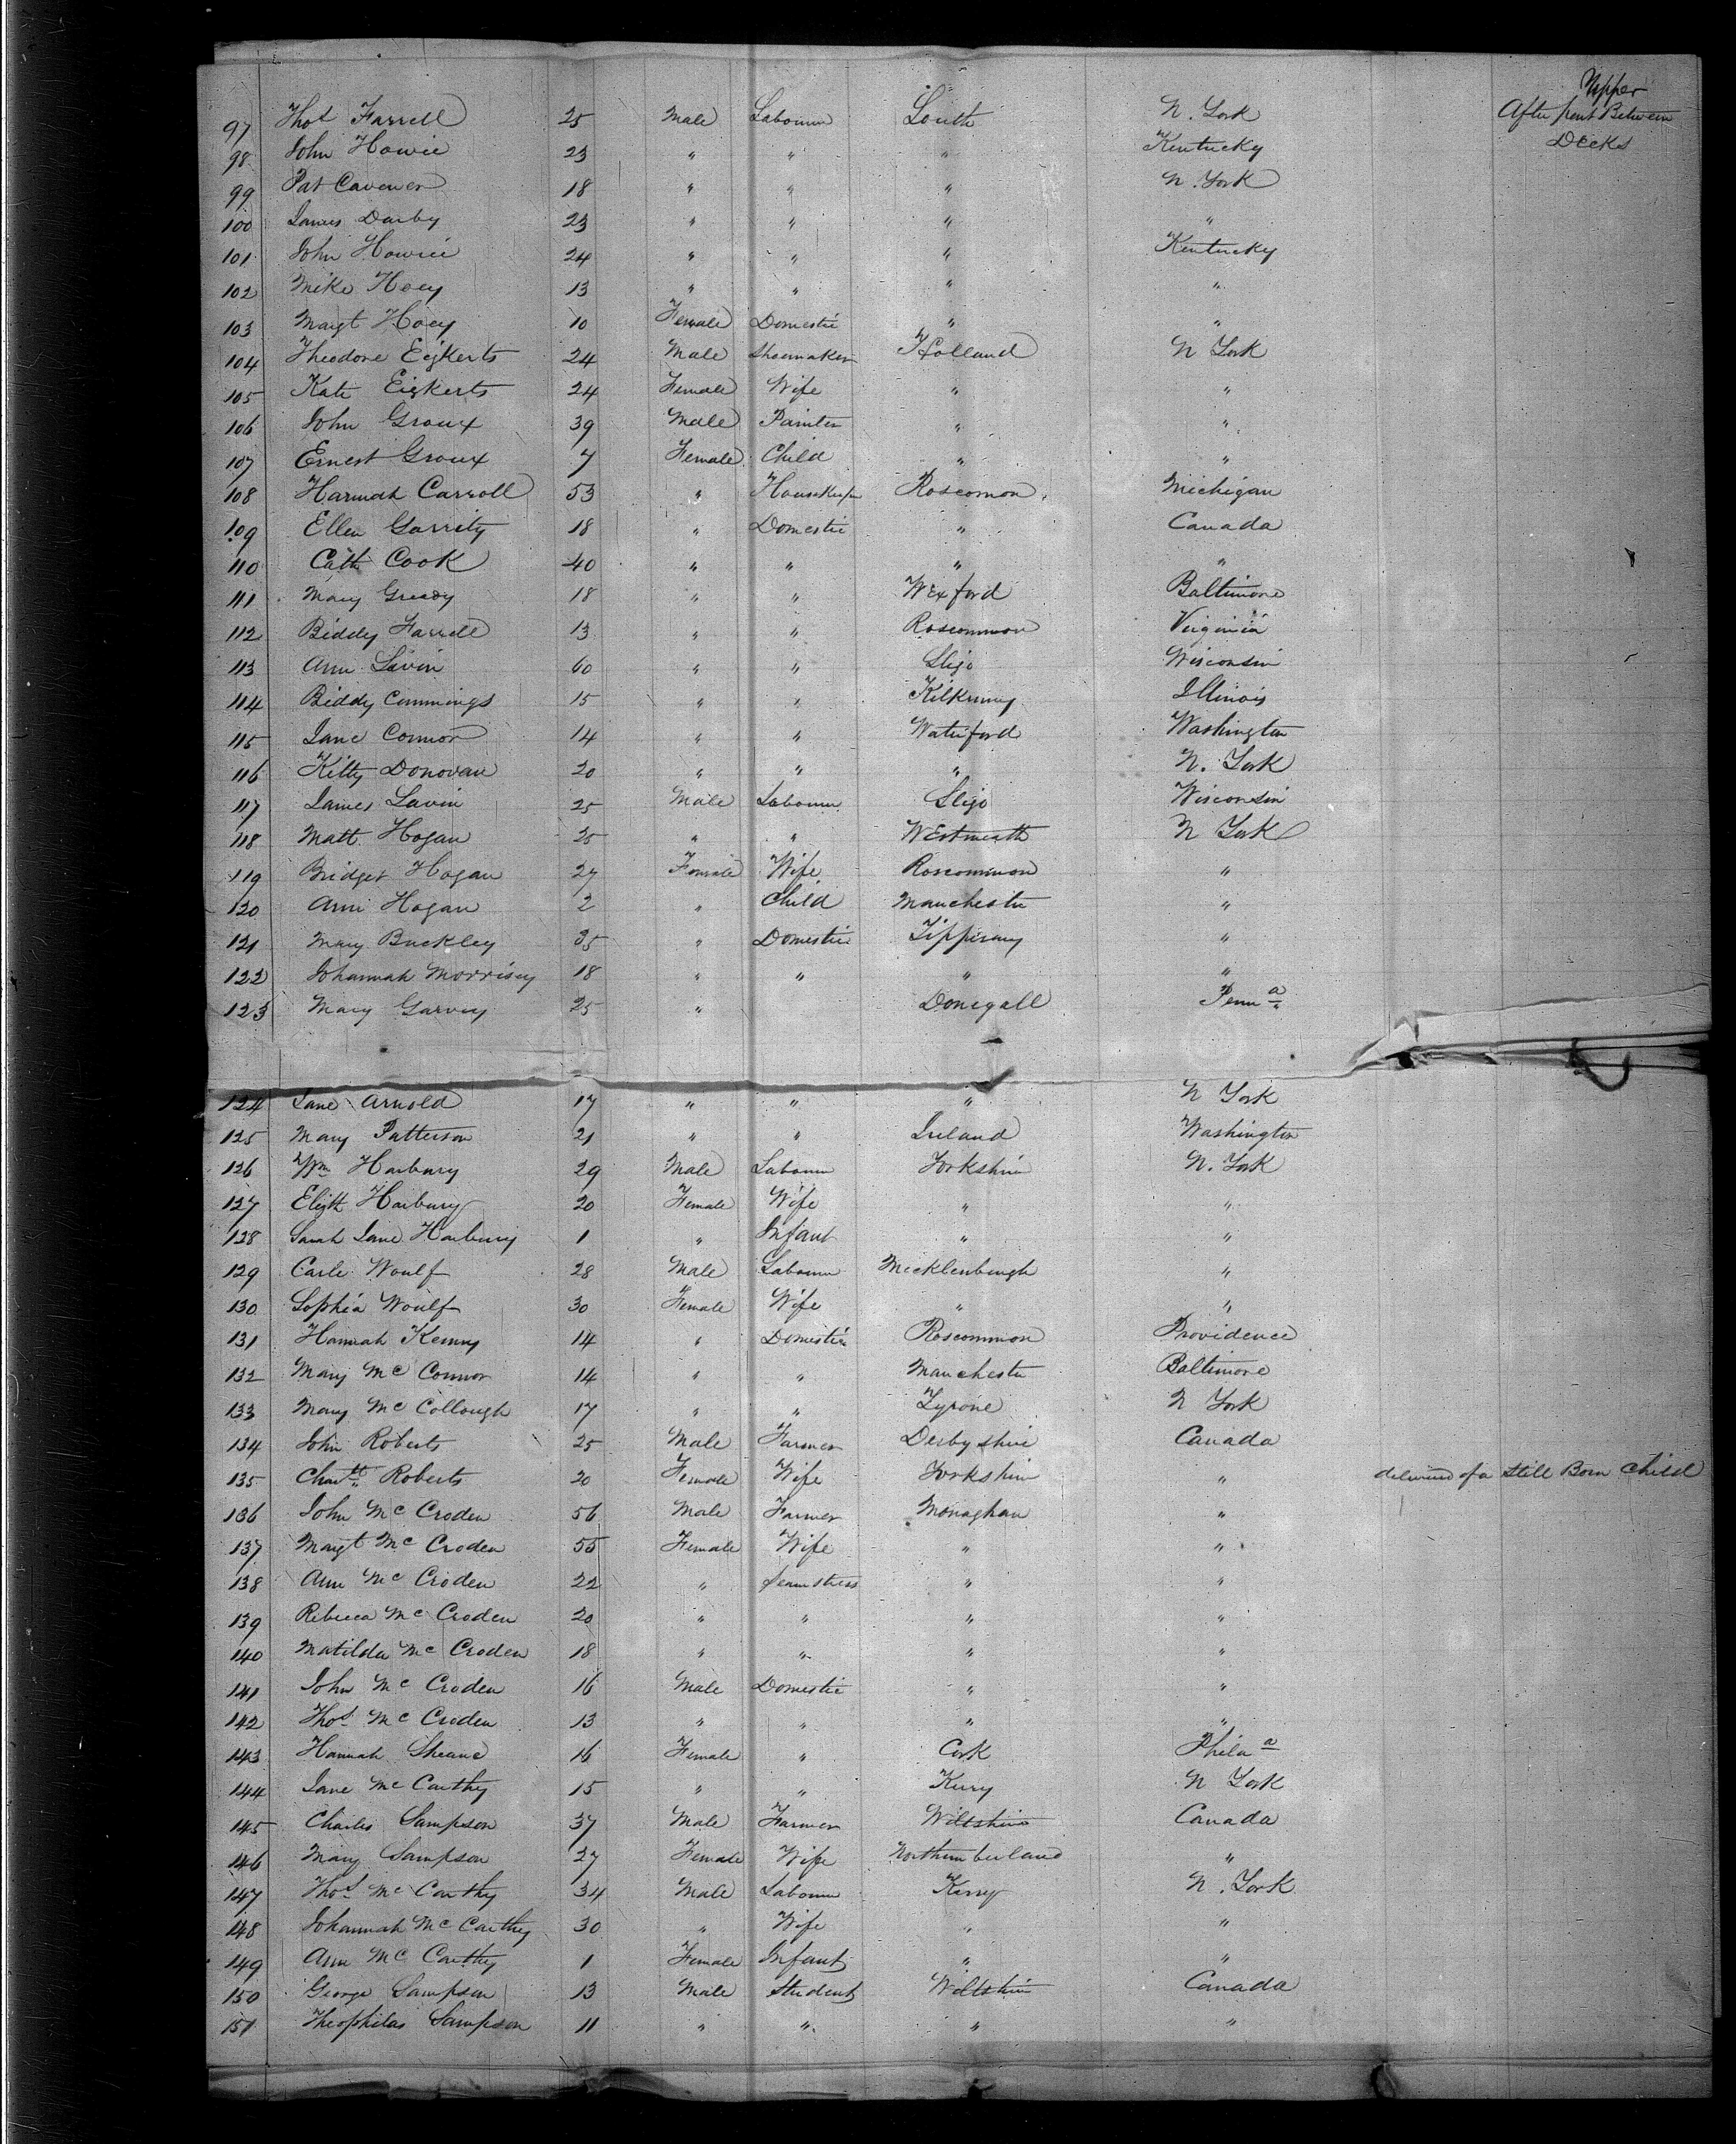 Upper
97 Thos Farrell 25 Male Labourer Louth N. York After part Between
98 John Howie 23 " " " Kentucky Decks
99 Pat Cavener 18 " " " N. York
100 James Darby 23 " " " "
101 John Howie 24 " " " Kentucky
102 Mike Hoey 13 " " " "
103 Margt Hoey 10 Female Domestic " "
104 Theodore Eijkerts 24 Male Shoemaker Holland N York
105 Kate Eijkerts 24 Female Wife " "
106 John Groux 39 Male Painter " "
107 Ernest Groux 7 Female Child " "
108 Hannah Carroll 53 " Housekeeper Roscomon Michigan
109 Ellen Garrity 18 " Domestic " Canada
110 Cath Cook 40 " " " "
111 Mary 18 " " Wexford Baltimore
112 Biddy Farrell 13 " " Roscommon Virginia
113 Ann Lavin 60 " " Sligo Wisconsin
114 Biddy Cummings 15 " " Kilkenny Illinois
115 Jane Connor 14 " " Waterford Washington
116 Kitty Donovan 20 " " " N. York
117 James Lavin 25 Male Labourer Sligo Wisconsin
118 Matt Hogan 25 " " Westmeath N York
119 Bridget Hogan 27 Female Wife Roscommon "
120 Ann Hogan 2 " Child Manchester "
121 Mary Buckley 35 " Domestic Tipperary "
122 Johannah Morrisey 18 " " " "
123 Mary Garvey 25 " Donegall Penna
124 Jane Arnold 17 " " " N York
125 Mary Patterson 21 " " Ireland Washington
126 Wm Harbury 29 Male Labourer Yorkshire N. York
127 Elizth Harbury 20 Female Wife " "
128 Sarah Jane Harbury 1 " Infant " "
129 Carle Woulf 28 Male Labourer Mecklenburgh "
130 Sophia Woulf 30 Female Wife " "
131 Hannah Kenny 14 " Domestic Roscommon Providence
132 Mary Mc Connor 14 " " Manchester Baltimore
133 Mary Mc Collough 17 " " Tyrone N York
134 John Roberts 25 Male Farmer Derbyshire Canada
135 Chartt Roberts 20 Female Wife Yorkshire " delivered of a Still Born Child
136 John Mc Croden 56 Male Farmer Monaghan "
137 Margt Mc Croden 55 Female Wife " "
138 Ann Mc Croden 22 " Seamstress " "
139 Rebecca Mc Croden 20 " " " "
140 Matilda Mc Croden 18 " " " "
141 John Mc Croden 16 Male Domestic " "
142 Thos Mc Croden 13 " " " "
143 Hannah Sheane 16 Female " Cork Phila
144 Jane Mc Carthy 15 " " Kerry N York
145 Charles Sampson 37 Male Farmer Wiltshire Canada
146 Mary Sampson 27 Female Wife Northumberland "
147 Thos Mc Carthy 34 Male Labourer Kerry N. York
148 Johannah Mc Carthy 30 " Wife " "
149 Ann Mc Carthy 1 Female Infant " "
150 George Sampson 13 Male Student Wiltshire Canada
151 Theophilas Sampson 11 " " " "